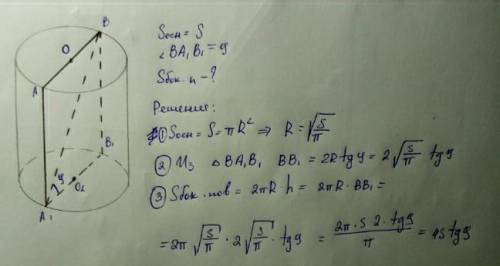 B
O
A
B₁
φ
O₂
A₁
Sосн = S
∠BA₁B₁ = φ
Sбок. п - ?
Решение:
① Sосн = S = πR² ⇒ R = √(S/π)
② Из △BA₁B₁ BB₁ = 2R tg φ = 2√(S/π) tg φ
③ Sбок. пов = 2πR h = 2πR · BB₁ =
= 2π √(S/π) · 2√(S/π) · tg φ = (2π · S · 2 · tg φ)/π = 4S tg φ